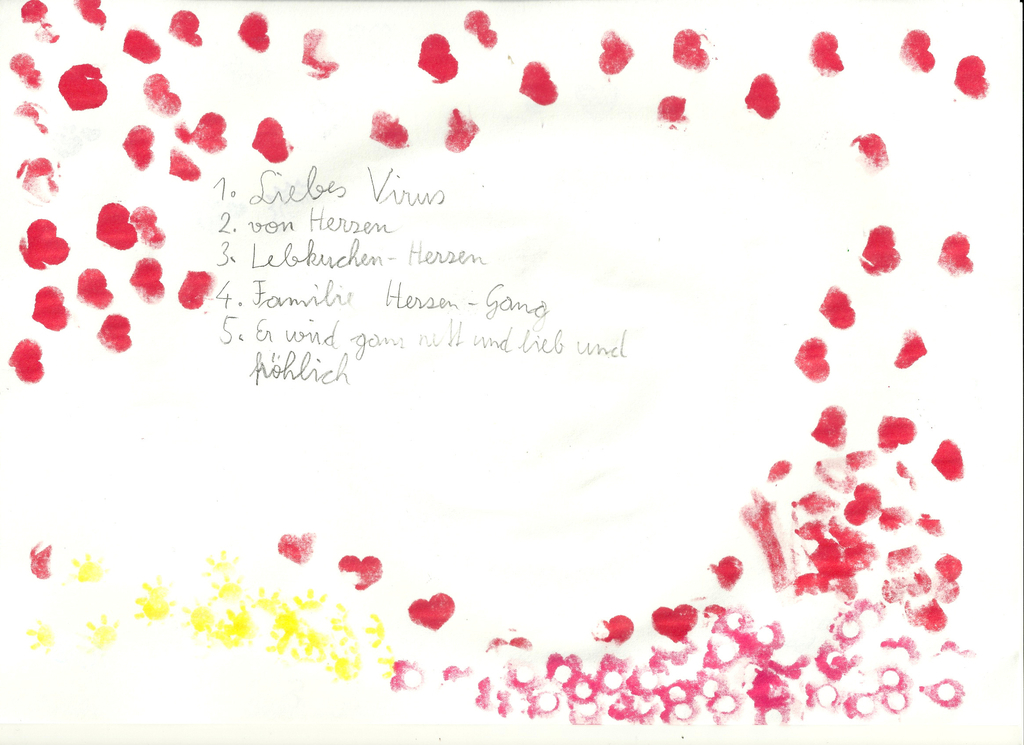 1. Liebes Virus
2. von Herzen
3. Lebkuchen-Herzen
4. Familie Herzen-Gang
5. Er wird ganz nett und lieb und
fröhlich